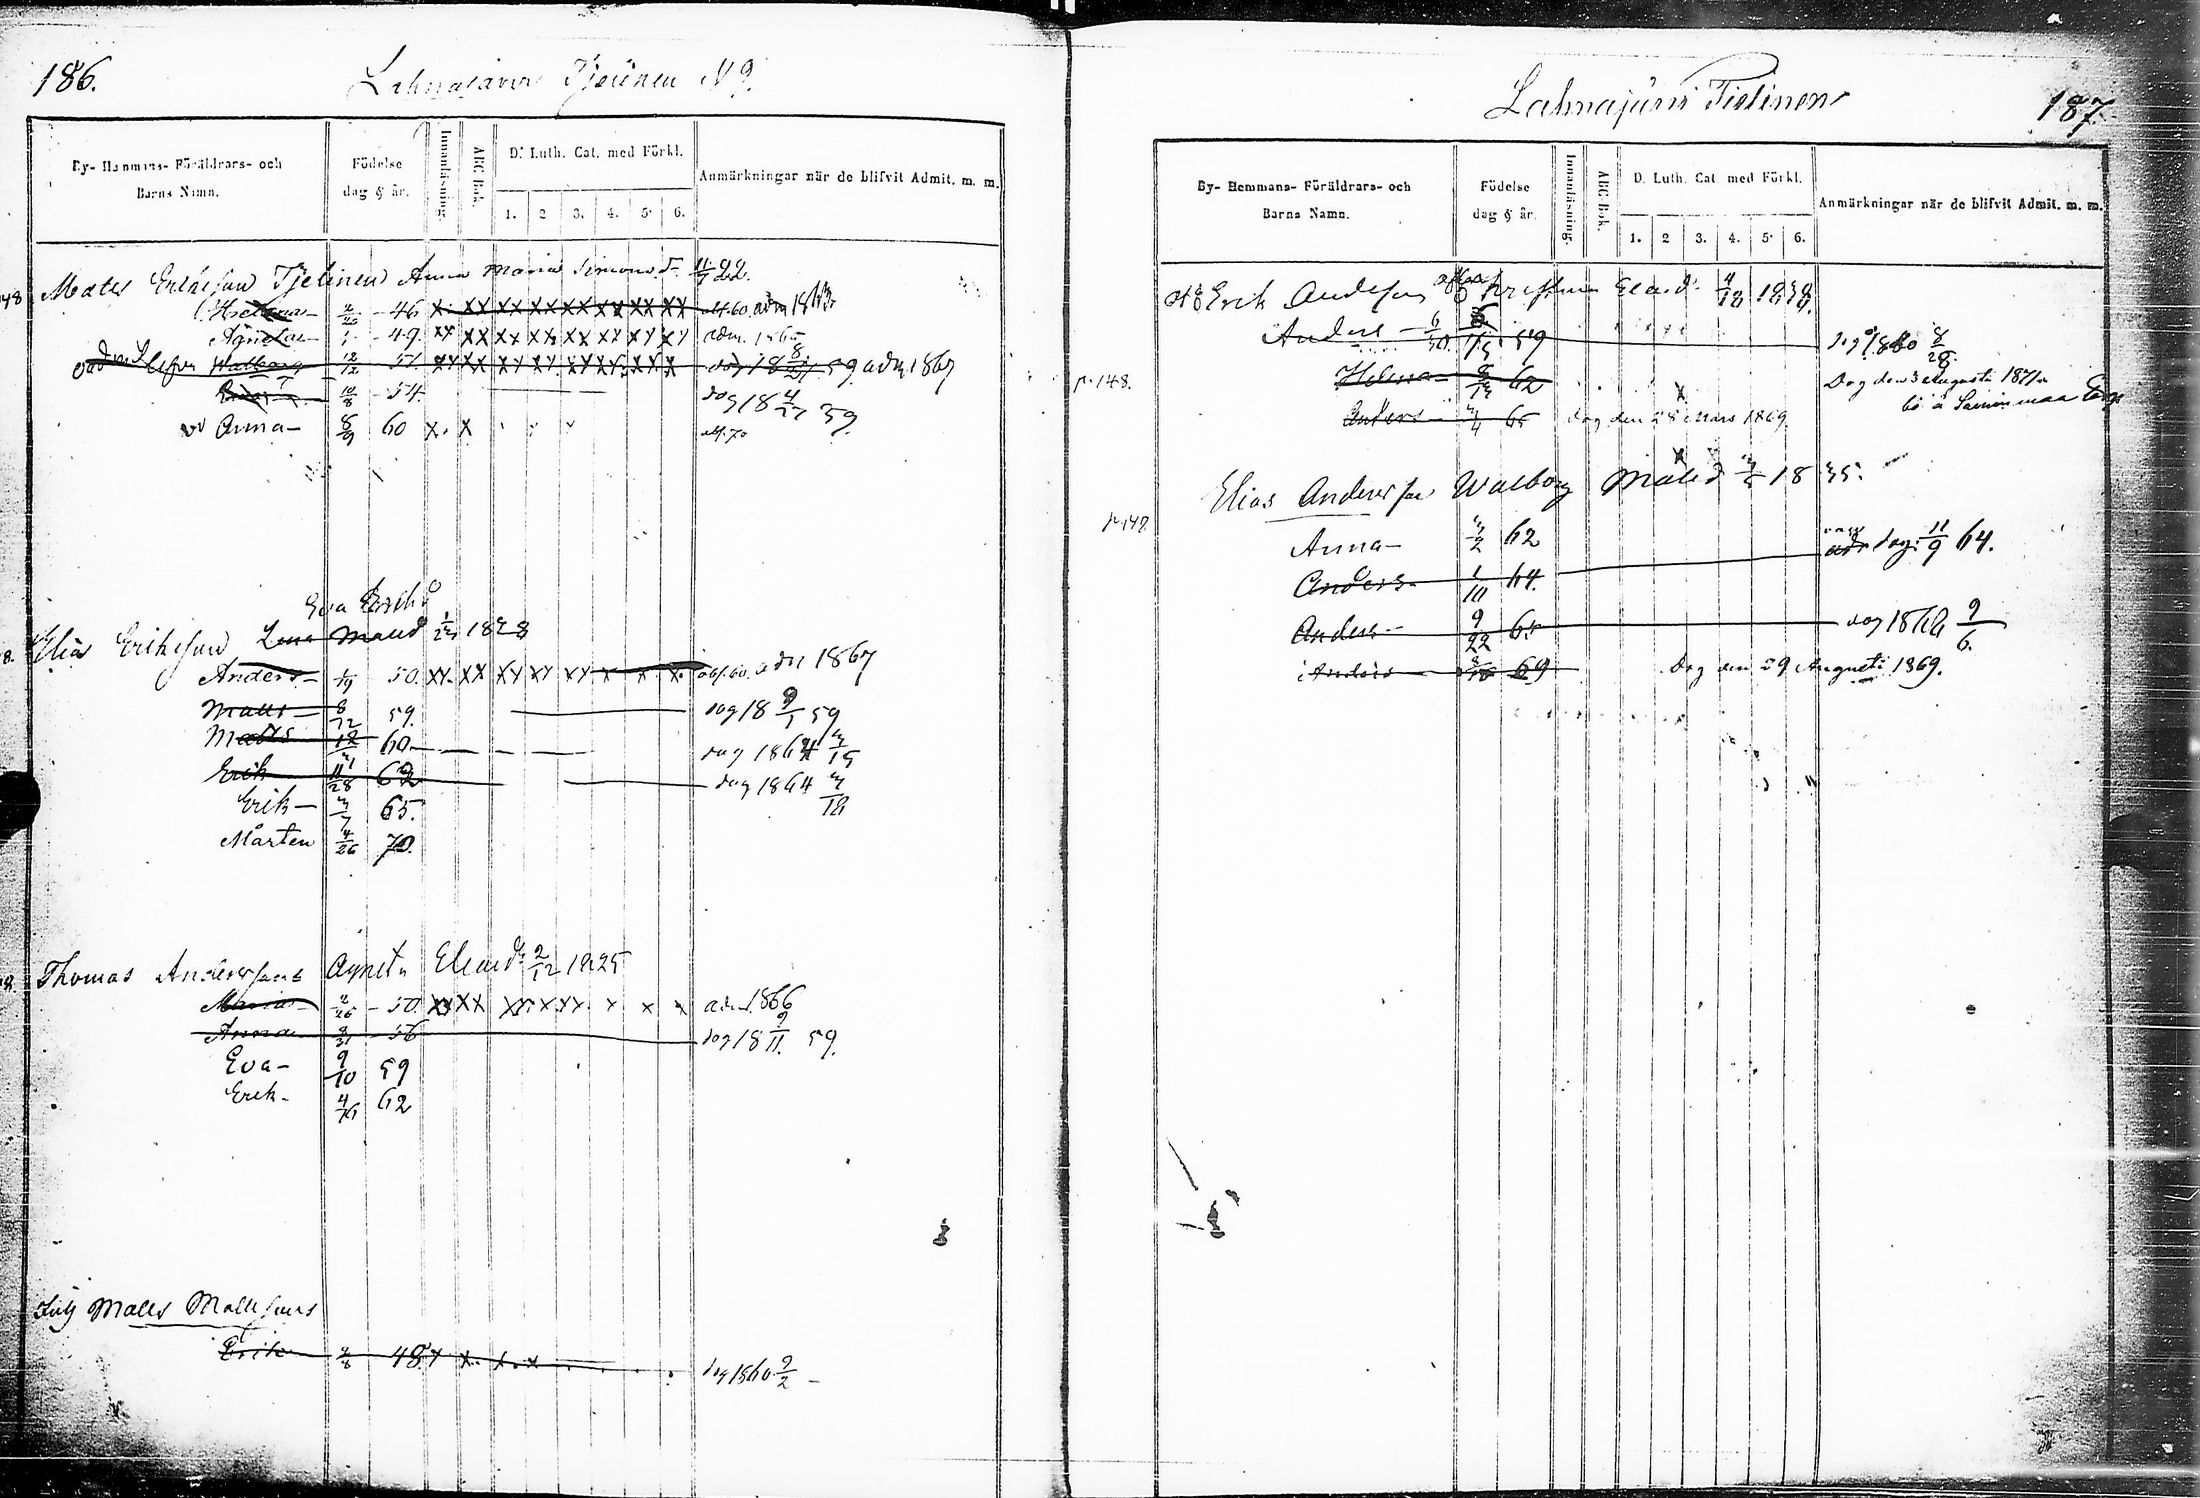 186.
Lahnajärvi Tjelinen N 9.
By- Hemmans- Föräldrars- och Barns Namn.
Födelse dag & år.
Innanläsning.
ABC Bok.
D:r Luth. Cat. med Förkl.
1. 2 3. 4. 5. 6.
Anmärkningar när de blifvit Admit. m. m.
Mats Eriksson Tjelinen Anna Maria Simonsd:r 11/7 22.
Helena - 46 x. xx xx xx xx xx xx xx adm 1863
Agneta - 49. xx xx xx xx xx xx xx xx adm. 1865
Walborg 12/12 51. xx xx xx xx xx xx xx x. dog 18 8/21 59. adm 1867
10/8 - 54. dog 18 4/27 59.
Anna - 8/9 60 x. x
Eva
Elias Eriksson Lena Matsd 1828
Anders - 1/19 50. xx. xx xx xx xx x x. x. adm 1867
Matts - 8/12 59. dog 18 9/1 59
Matts 12/21 60. dog 1864 3/15
Erik 11/28 62 dog 1864 3/18
Erik - 3/7 65.
Mårten 4/26 70.
Thomas Anderssons Agneta Eliasd:r 2/12 1825
Maria - 2/26 - 50. xx xx xx. x. xx. x x x adm. 1866
Anna 8/31 56 dog 18 9/11. 59.
Eva - 9/10 59
Erik - 4/16 62
Inh Matts Mattssons
Erik 2/8 48. x x. x. x dog 1860 9/2 -
Lahnajärvi Tielinen
187.
By- Hemmans- Föräldrars- och Barns Namn.
Födelse dag & år.
Innanläsning.
ABC Bok.
D. Luth. Cat. med Förkl.
1. 2 3. 4. 5. 6.
Anmärkningar när de blifvit Admit. m. m.
Erik Andersson Eliasd. 4/18 1838.
Anders - 59 dog 1860 8/28.
p. 148.
Helena - 62 Dog den 3 Augusti 1871
Anders - 3/4 65 dog den 28 Mars 1869.
Elias Andersson Walborg Matsd 1835.
p. 147.
Anna - 3/2 62
Anders. 1/10 64. dog. 11/9 64.
Anders - 9/22 65 dog 1866 9/6.
Anders 69 Dog den 29 Augusti 1869.